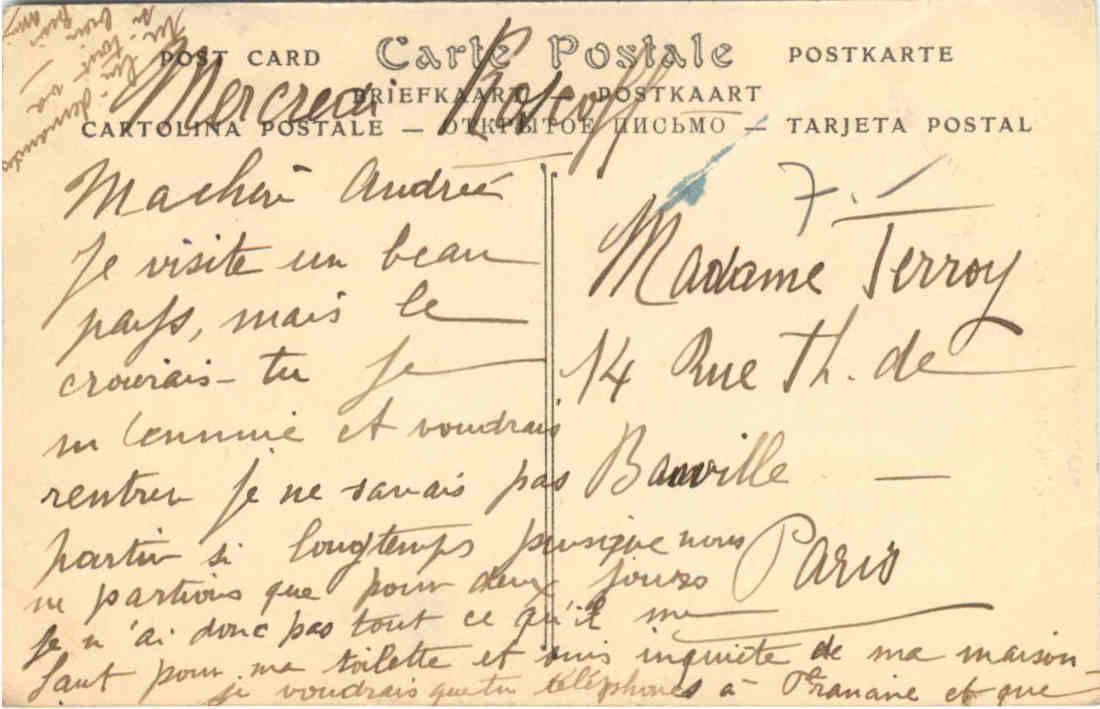 POST CARD Carte Postale POSTKARTE
BRIEFKAART — POSTKAART
CARTOLINA POSTALE — ОТКРЫТОЕ ПИСЬМО — TARJETA POSTAL
Mercredi Roscoff
Ma chère Andrée
Je visite un beau
pays, mais le
croirais-tu je
m'ennuie et voudrais
rentrer je ne savais pas
partir si longtemps puisque nous
ne partions que pour deux jours
Je n'ai donc pas tout ce qu'il me
faut pour ma toilette et suis inquiète de ma maison
je voudrais que tu téléphones à et que
tu lui demandes
si tout va
bien
7.
Madame Terroy
14 Rue Th. de
Banville —
Paris